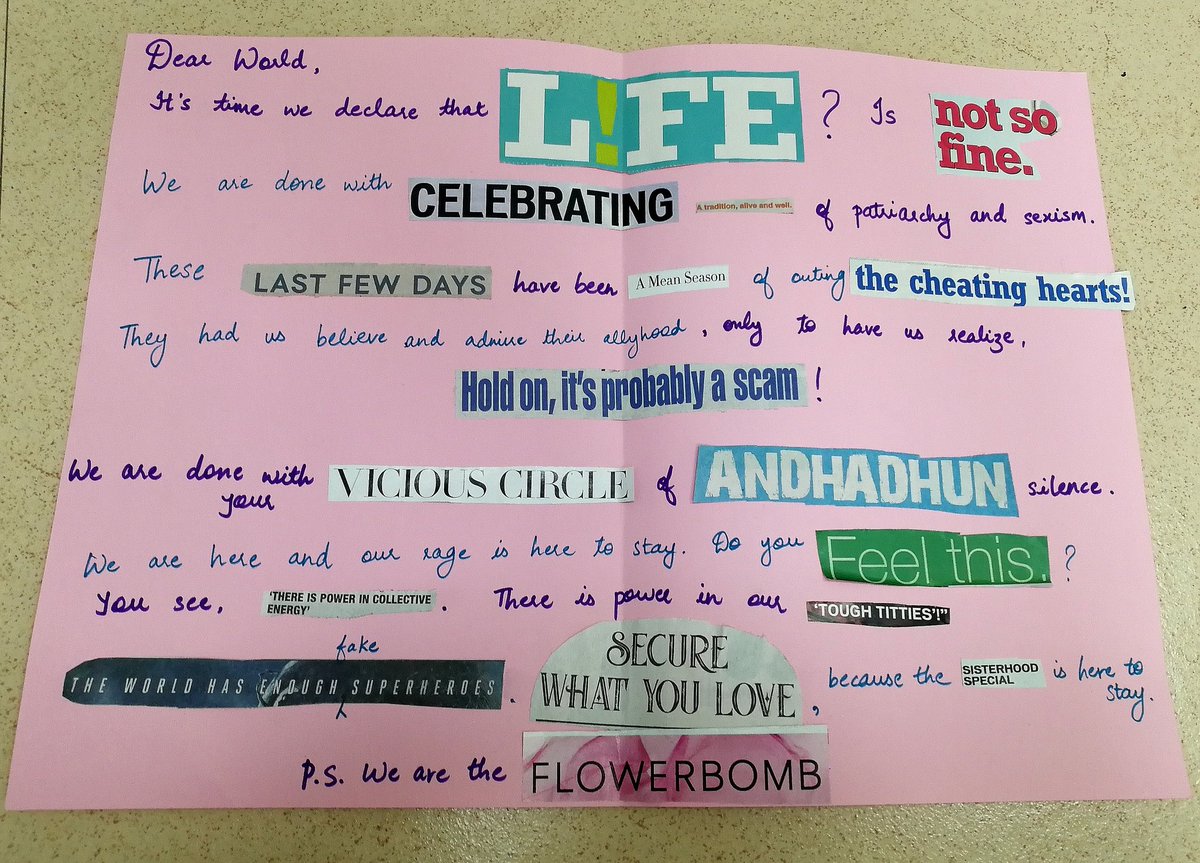 Dear World,
It's time we declare that L!FE ? Is not so fine.
We are done with CELEBRATING A tradition, alive and well. of patriarchy and sexism.
These LAST FEW DAYS have been A Mean Season of outing the cheating hearts!
They had us believe and admire their allyhood, only to have us realize,
Hold on, it's probably a scam !
We are done with your VICIOUS CIRCLE of ANDHADHUN silence.
We are here and our rage is here to stay. Do you Feel this. ?
You see, 'THERE IS POWER IN COLLECTIVE ENERGY' . There is power in our 'TOUGH TITTIES'!"
THE WORLD HAS ENOUGH fake SUPERHEROES . SECURE WHAT YOU LOVE , because the SISTERHOOD SPECIAL is here to stay.
P.S. We are the FLOWERBOMB